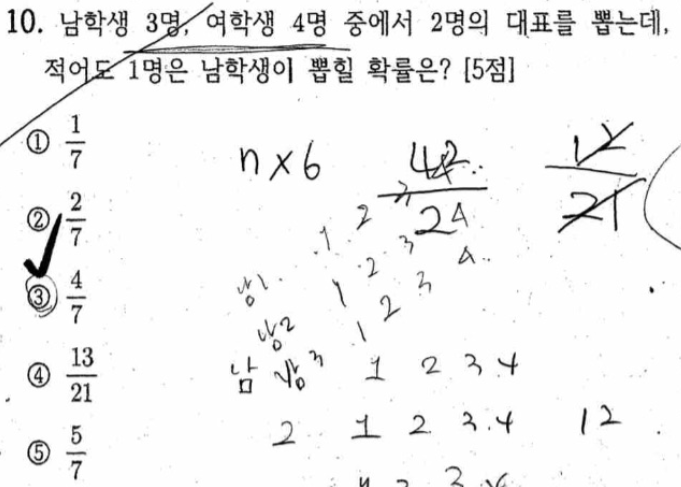 10. 남학생 3명, 여학생 4명 중에서 2명의 대표를 뽑는데,
적어도 1명은 남학생이 뽑힐 확률은? [5점]
① 1/7
② 2/7
③ 4/7
④ 13/21
⑤ 5/7
n×6
12/21
1 2 3 4
1 2 3
1 2
남1
남2
남 남3 1 2 3 4
2 1 2 3 4 12